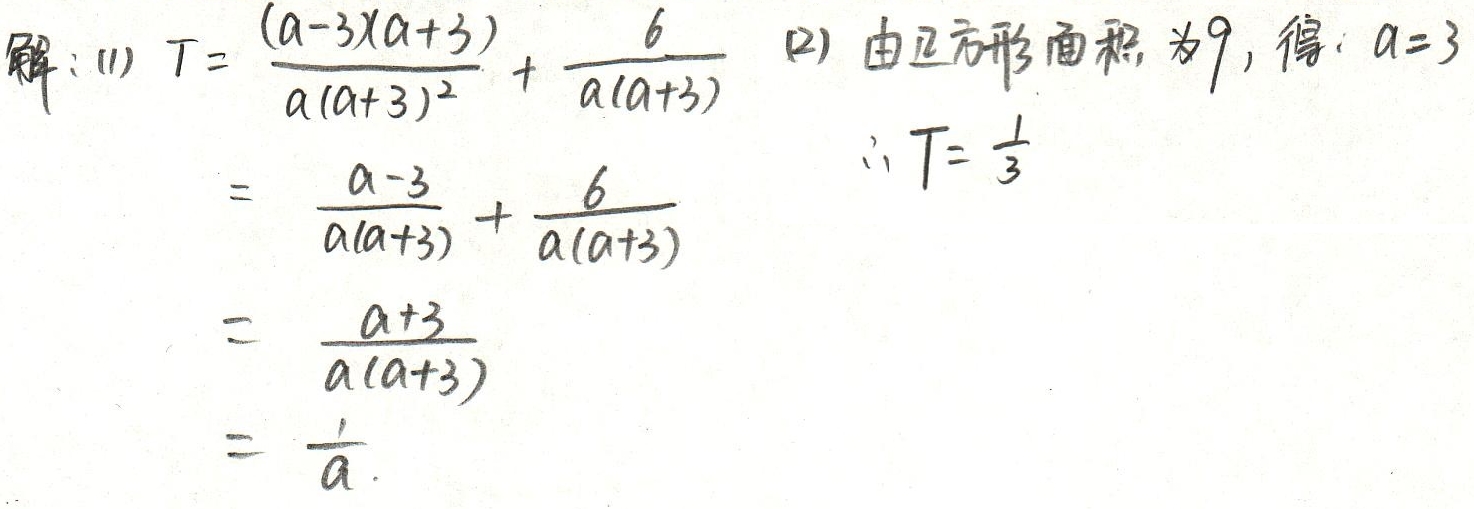 解:(1) T = \frac{(a-3)(a+3)}{a(a+3)^2} + \frac{6}{a(a+3)}
= \frac{a-3}{a(a+3)} + \frac{6}{a(a+3)}
= \frac{a+3}{a(a+3)}
= \frac{1}{a}.
(2) 由正方形面积为9, 得: a=3
∴ T = \frac{1}{3}